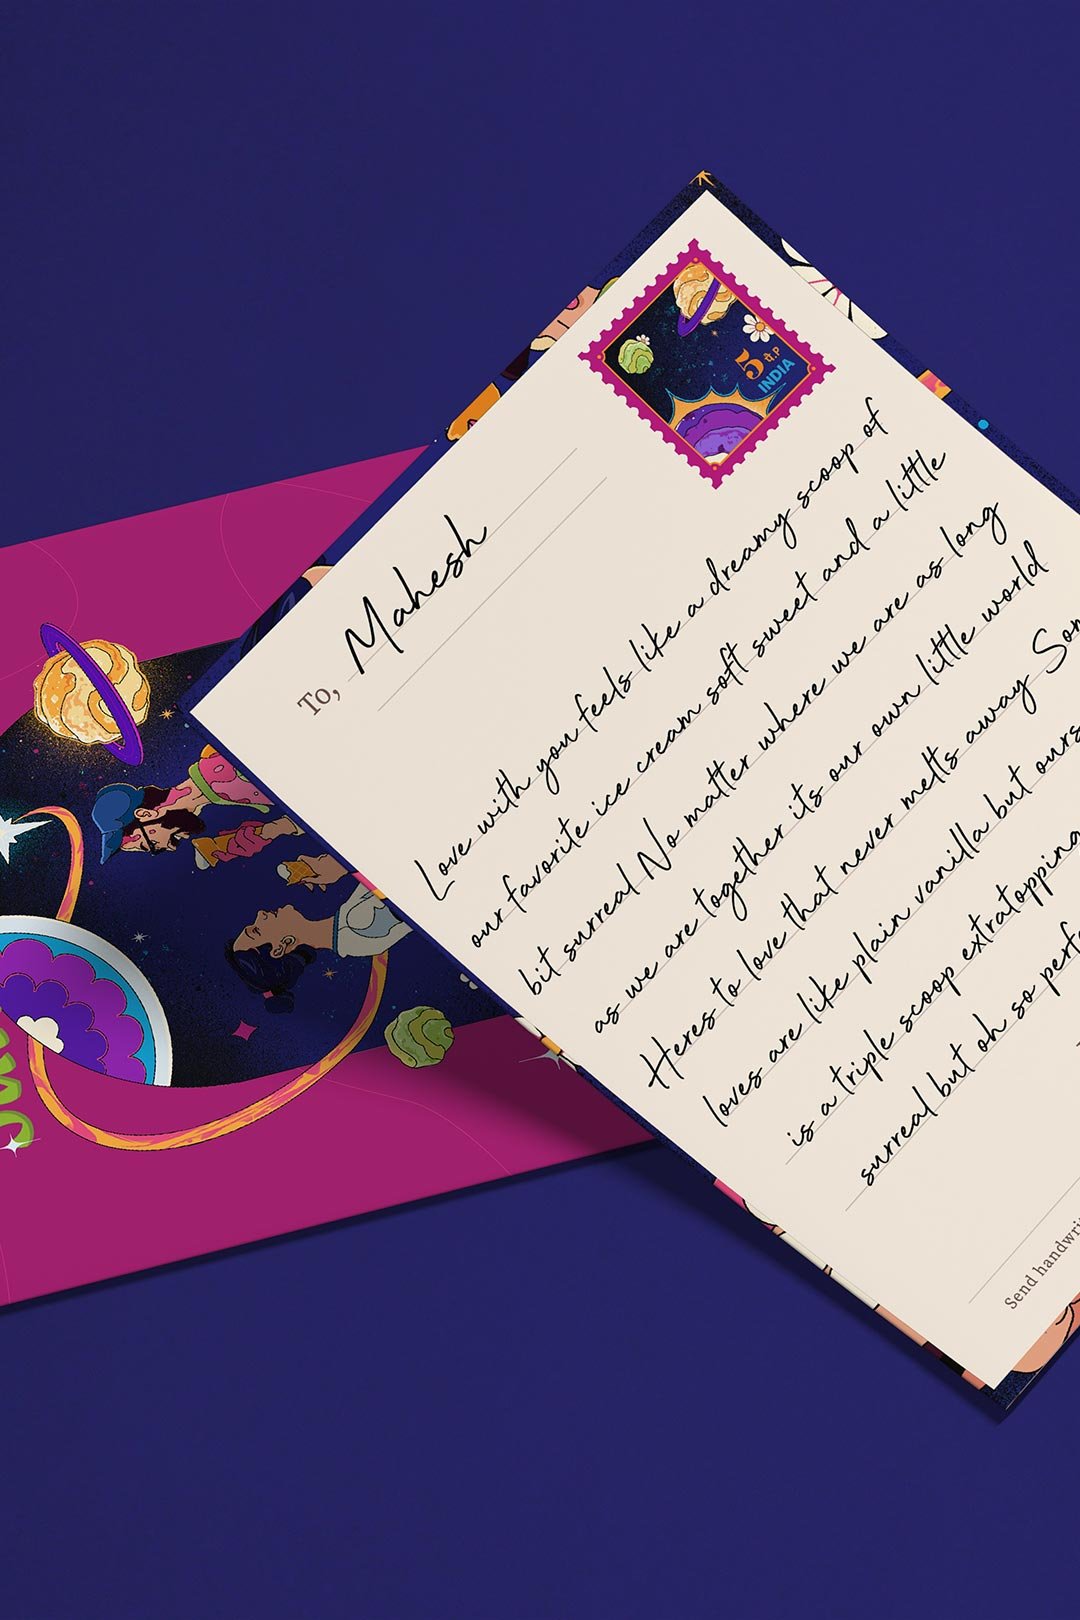 5
INDIA
To, Mahesh
Love with you feels like a dreamy scoop of
our favorite ice cream soft sweet and a little
bit surreal No matter where we are as long
as we are together its our own little world
Heres to love that never melts away Som
loves are like plain vanilla but ours
is a triple scoop extratopping
surreal but oh so perfe
Send handwri